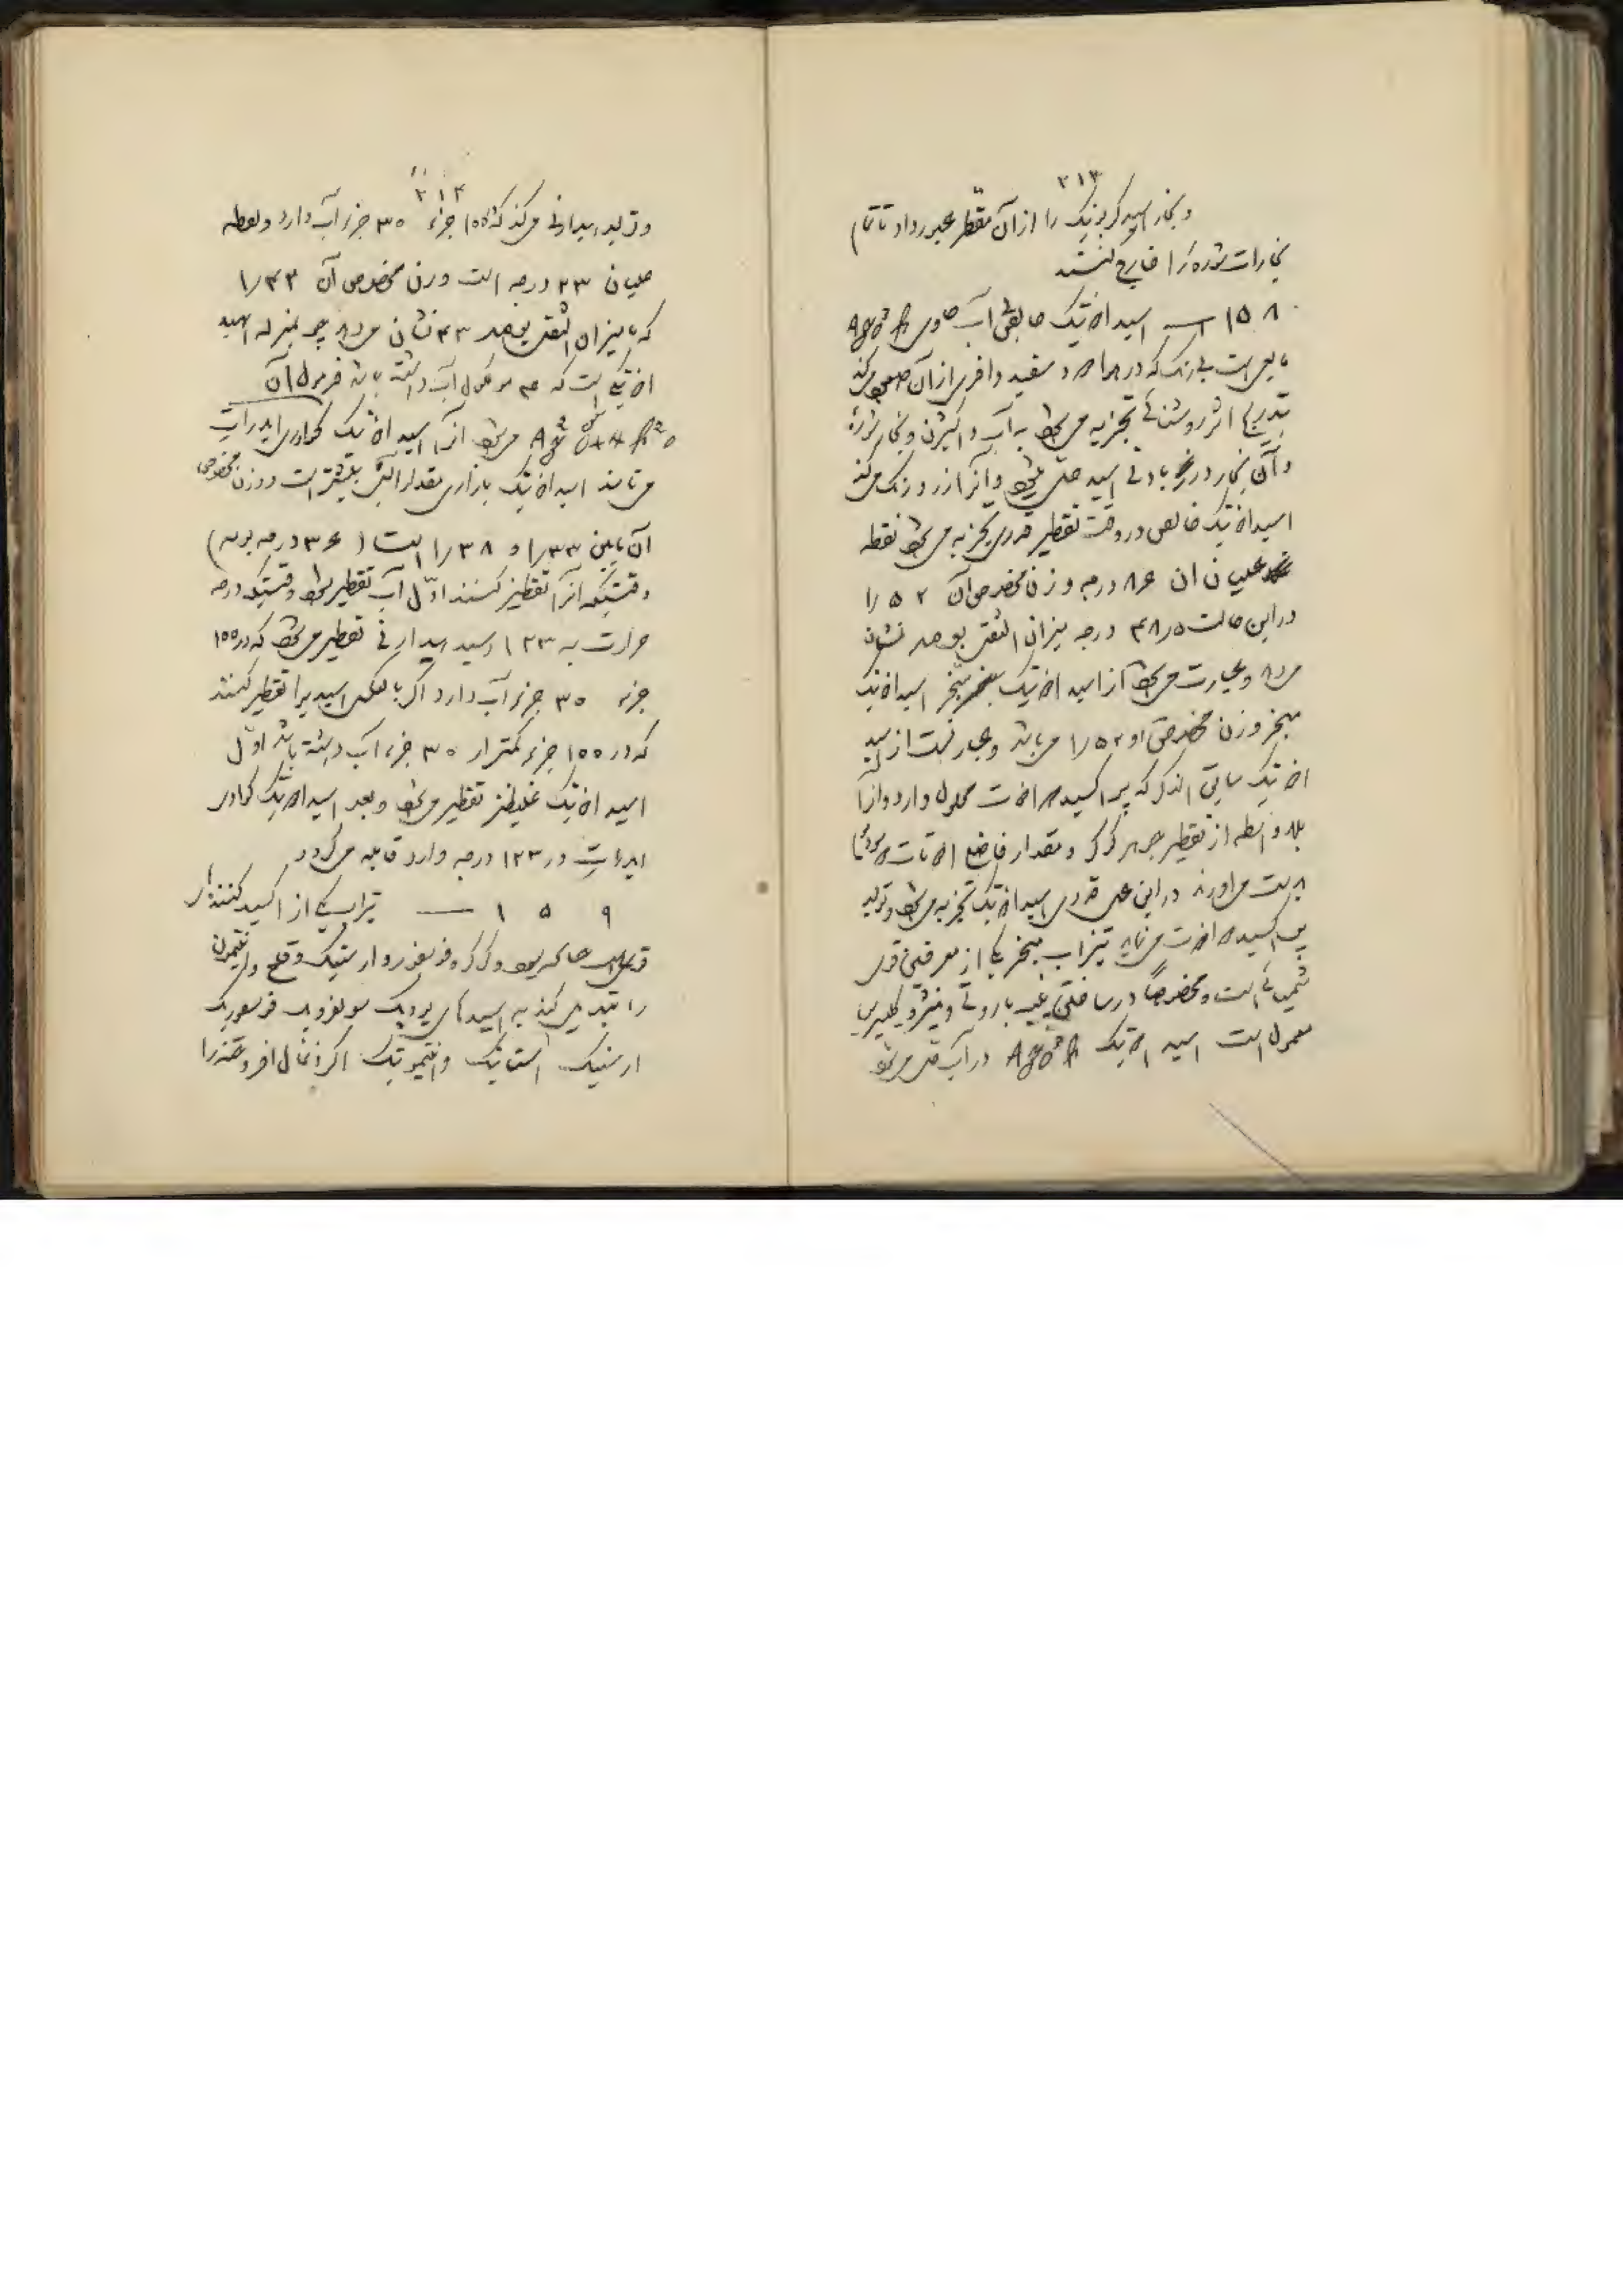 ۲۱۳
و بخار اسید کربونیک را از آن مقطر عبور داد تا تمام
بخارات شوره را خارج کنند
۱۵۸ — اسید ازتیک خالص آب حاوی
مایعی است بی رنگ که در هوا دود سفید وافری از آن
بتدریج اثر روشنائی تجزیه می شود به آب و اکسیژن و بخار شوره
و آن بخار در باقی اسید حل می شود و آنرا زرد رنگ می کند
اسید ازتیک خالص در وقت تقطیر قدری تجزیه می شود نقطه
غلیان آن ۸۶ درجه وزن مخصوص آن ۱٫۵۲
در این حالت ۴۸٫۵ درجه میزان الثقل بومه نشان
می دهد و عبارت می شود از اسید ازتیک مبخر اسید ازتیک
مبخر وزن مخصوص او ۱٫۵۲ می باشد و عبارتست از اسید
ازتیک سابق الذکر که پراکسید ازت محلول دارد و آنرا
بلاواسطه از تقطیر جوهر گوگرد و مقدار فاضل ازتات
بدست می آورند در این عمل قدری اسید ازتیک تجزیه می شود و تولید
پراکسید ازت می نماید تیزاب مبخر یکی از معرفین قوی
شیمیائی است و مخصوصاً در ساختن پنبه باروتی و نیترو گلیسرین
معمول است اسید ازتیک در آب حل می شود
۲۱۴
و تولید ایدراتی می کند که ۱۰۰ جزء ۳۰ جزء آب دارد و نقطه
غلیان ۱۲۳ درجه است وزن مخصوص آن ۱٫۴۲
که بمیزان الثقل بومه ۴۳ نشان می دهد بمنزله اسید
ازتیکی است که مولکول آب داشته باشد فرمول آن
می شود آنرا اسید ازتیک کوادری ایدرات
می نامند اسید ازتیک بازاری مقدار آبش بیشتر است و وزن مخصوص
آن مابین ۱٫۳۳ و ۱٫۳۸ است (۳۶ درجه بومه)
وقتیکه آنرا تقطیر کنند اول آب تقطیر می شود وقتیکه درجه
حرارت به ۱۲۳ رسید ایدراتی تقطیر می شود که در ۱۰۰
جزء ۳۰ جزء آب دارد اگر بالعکس اسیدیرا تقطیر کنند
که در ۱۰۰ جزء کمتر از ۳۰ جزء آب داشته باشد اول
اسید ازتیک غلیظتر تقطیر می شود و بعد اسید ازتیک کوادری
ایدرات در ۱۲۳ درجه وارد قابله می گردد
۱۵۹ — تیزاب یکی از اکسید کننده های
قوی است و گوگرد و فسفر و ارسنیک و قلع و انتیمون
را تبدیل می کند به اسیدهای یودیک سولفوریک فسفوریک
ارسنیک استانیک و انتیمونیک اگر ذغال افروخته را